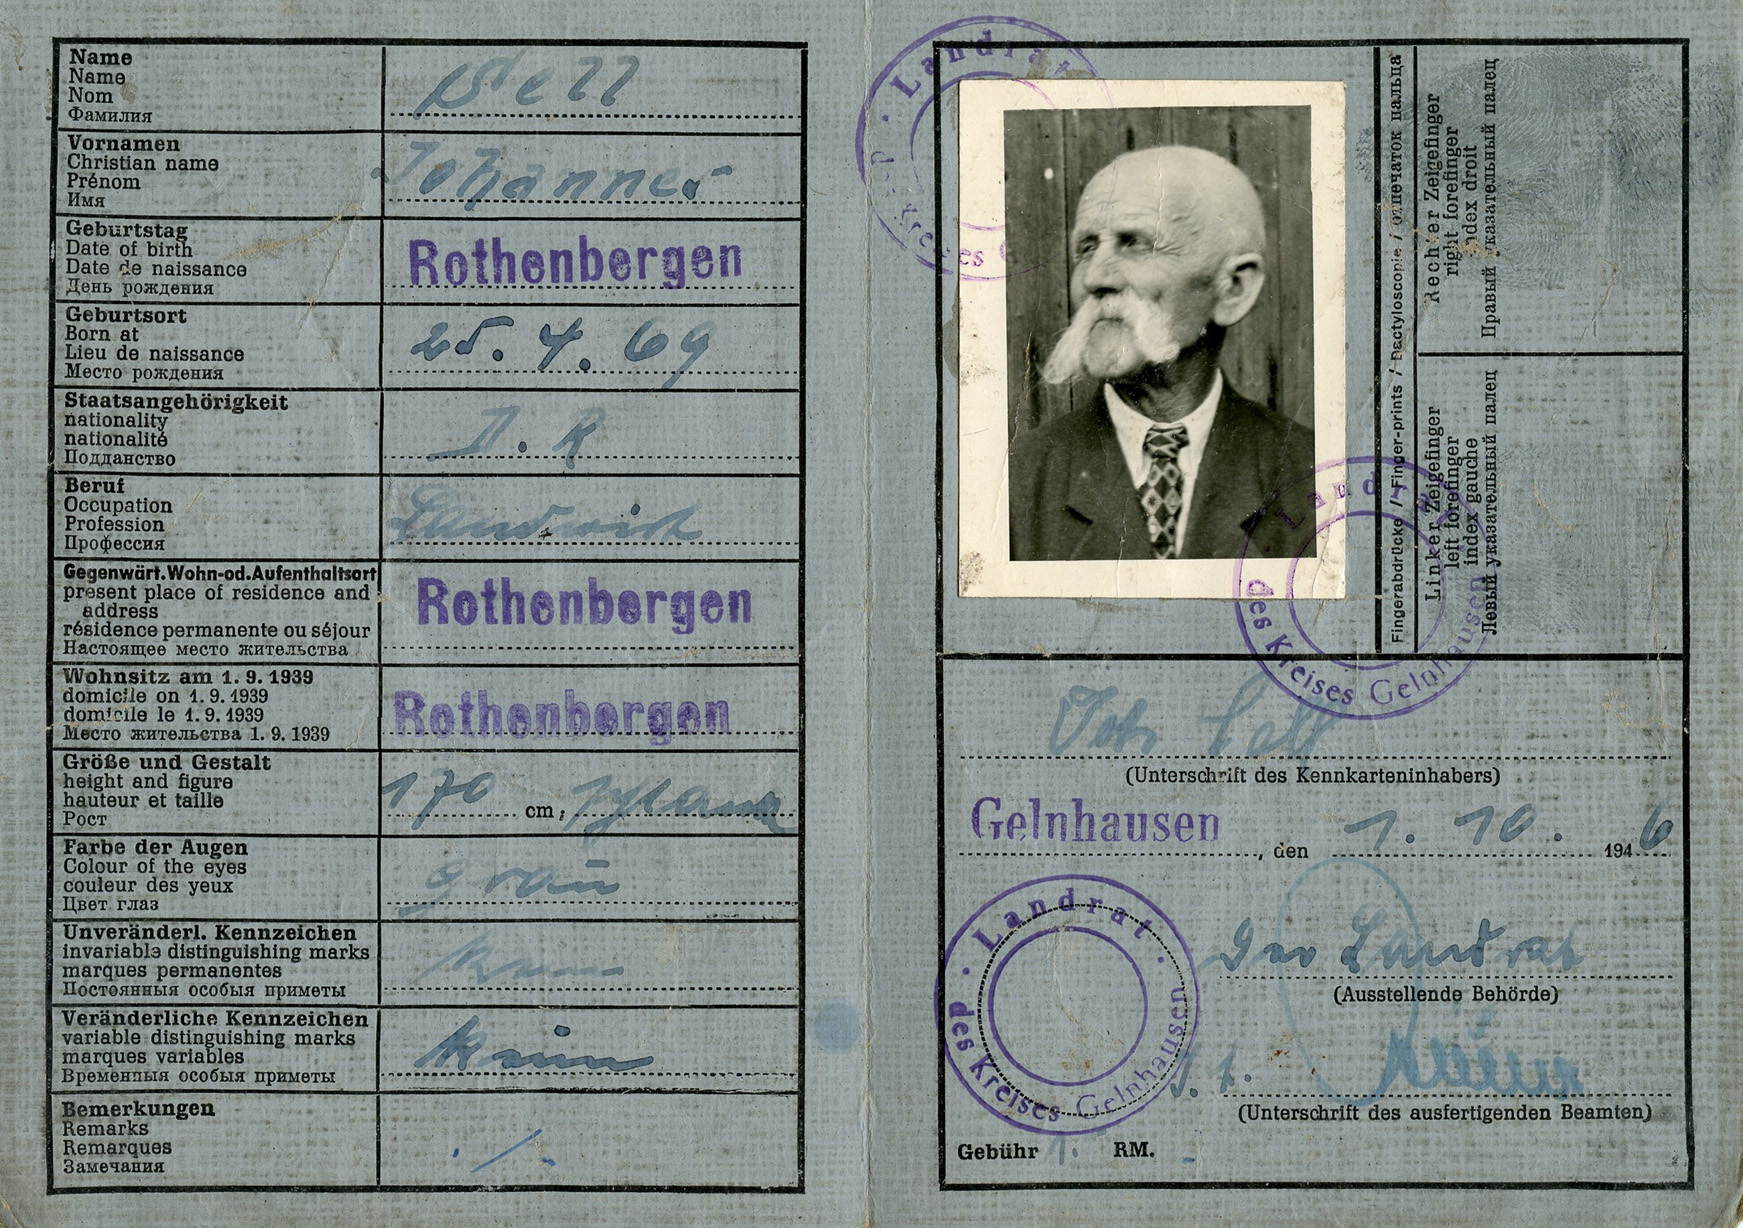 Name
Name
Nom
Фамилия
Vornamen
Christian name
Prénom
Имя
Johannes
Geburtstag
Date of birth
Date de naissance
День рождения
Rothenbergen
Geburtsort
Born at
Lieu de naissance
Место рождения
25. 4. 69
Staatsangehörigkeit
nationality
nationalité
Подданство
D. R
Beruf
Occupation
Profession
Профессия
Landwirt
Gegenwärt.Wohn-od.Aufenthaltsort
present place of residence and
address
résidence permanente ou séjour
Настоящее место жительства
Rothenbergen
Wohnsitz am 1. 9. 1939
domicile on 1. 9. 1939
domicile le 1. 9. 1939
Место жительства 1. 9. 1939
Rothenbergen
Größe und Gestalt
height and figure
hauteur et taille
Рост
170 cm;
Farbe der Augen
Colour of the eyes
couleur des yeux
Цвет глаз
grau
Unveränderl. Kennzeichen
invariable distinguishing marks
marques permanentes
Постоянныя особыя приметы
Veränderliche Kennzeichen
variable distinguishing marks
marques variables
Временныя особыя приметы
Bemerkungen
Remarks
Remarques
Замечания
Landrat
Kreises
Fingerabdrücke / Finger-prints / Dactyloscopie / отпечаток пальца
Rechter Zeigefinger
right forefinger
index droit
Правый указательный палец
Linker Zeigefinger
left forefinger
index gauche
Левый указательный палец
Landrat
des Kreises Gelnhausen
(Unterschrift des Kennkarteninhabers)
Gelnhausen, den 1. 10. 1946
Der Landrat
(Ausstellende Behörde)
Landrat
des Kreises Gelnhausen
(Unterschrift des ausfertigenden Beamten)
Gebühr 1. RM.